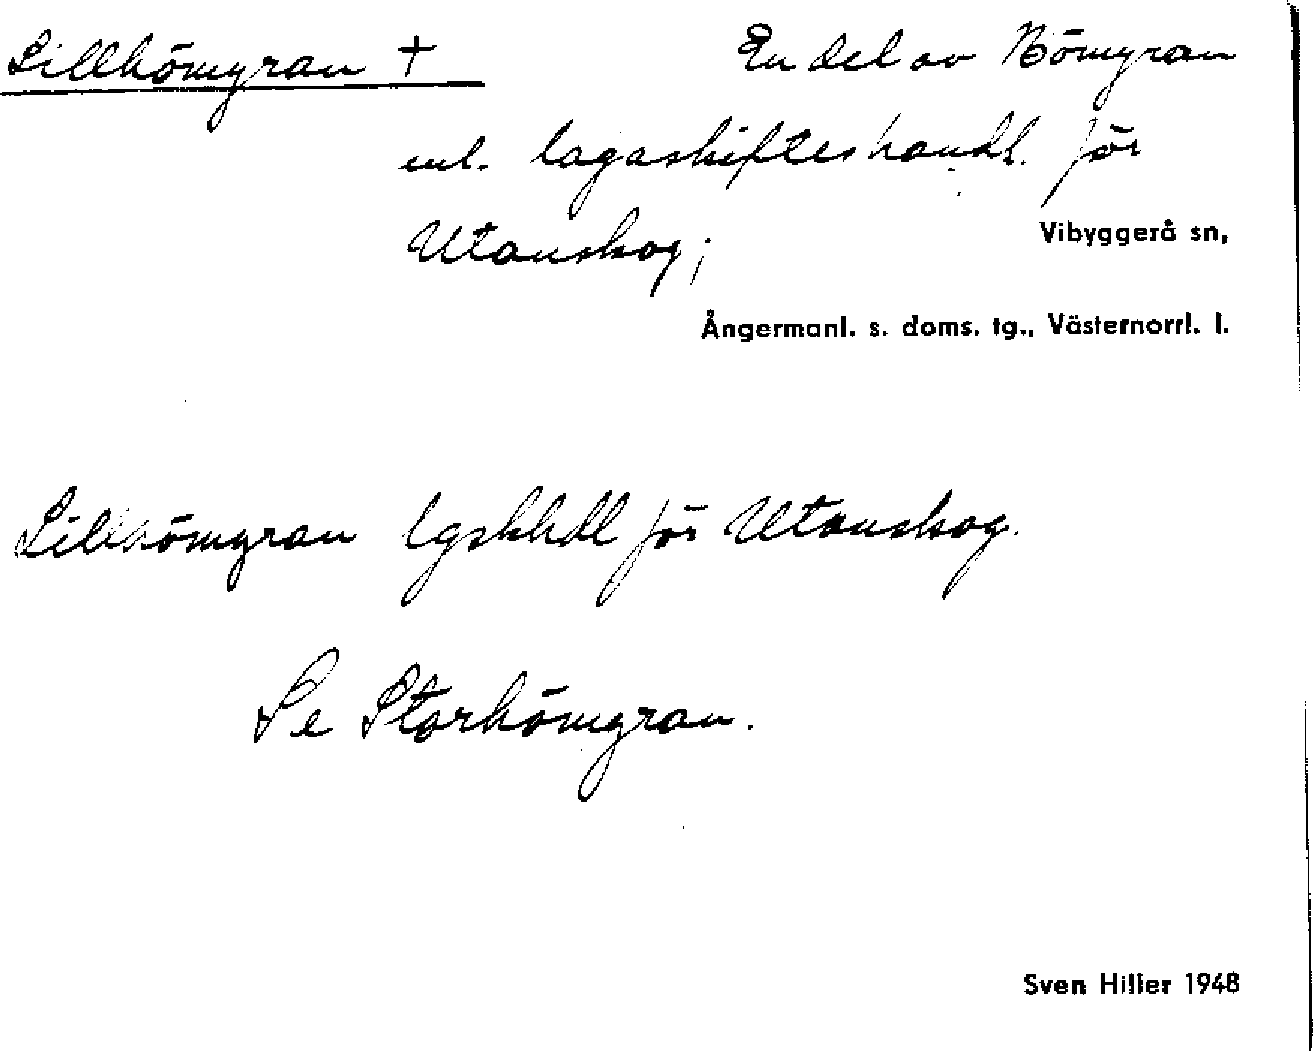 Lillhömyran +
En del av Hömyran
enl. lagaskifteshandl. för
Utanskog;
Vibyggerå sn,
Ångermanl. s. doms. tg., Västernorrl. l.
Lillhömyran lgskhdl för Utanskog.
Se Storhömyran.
Sven Hiller 1948